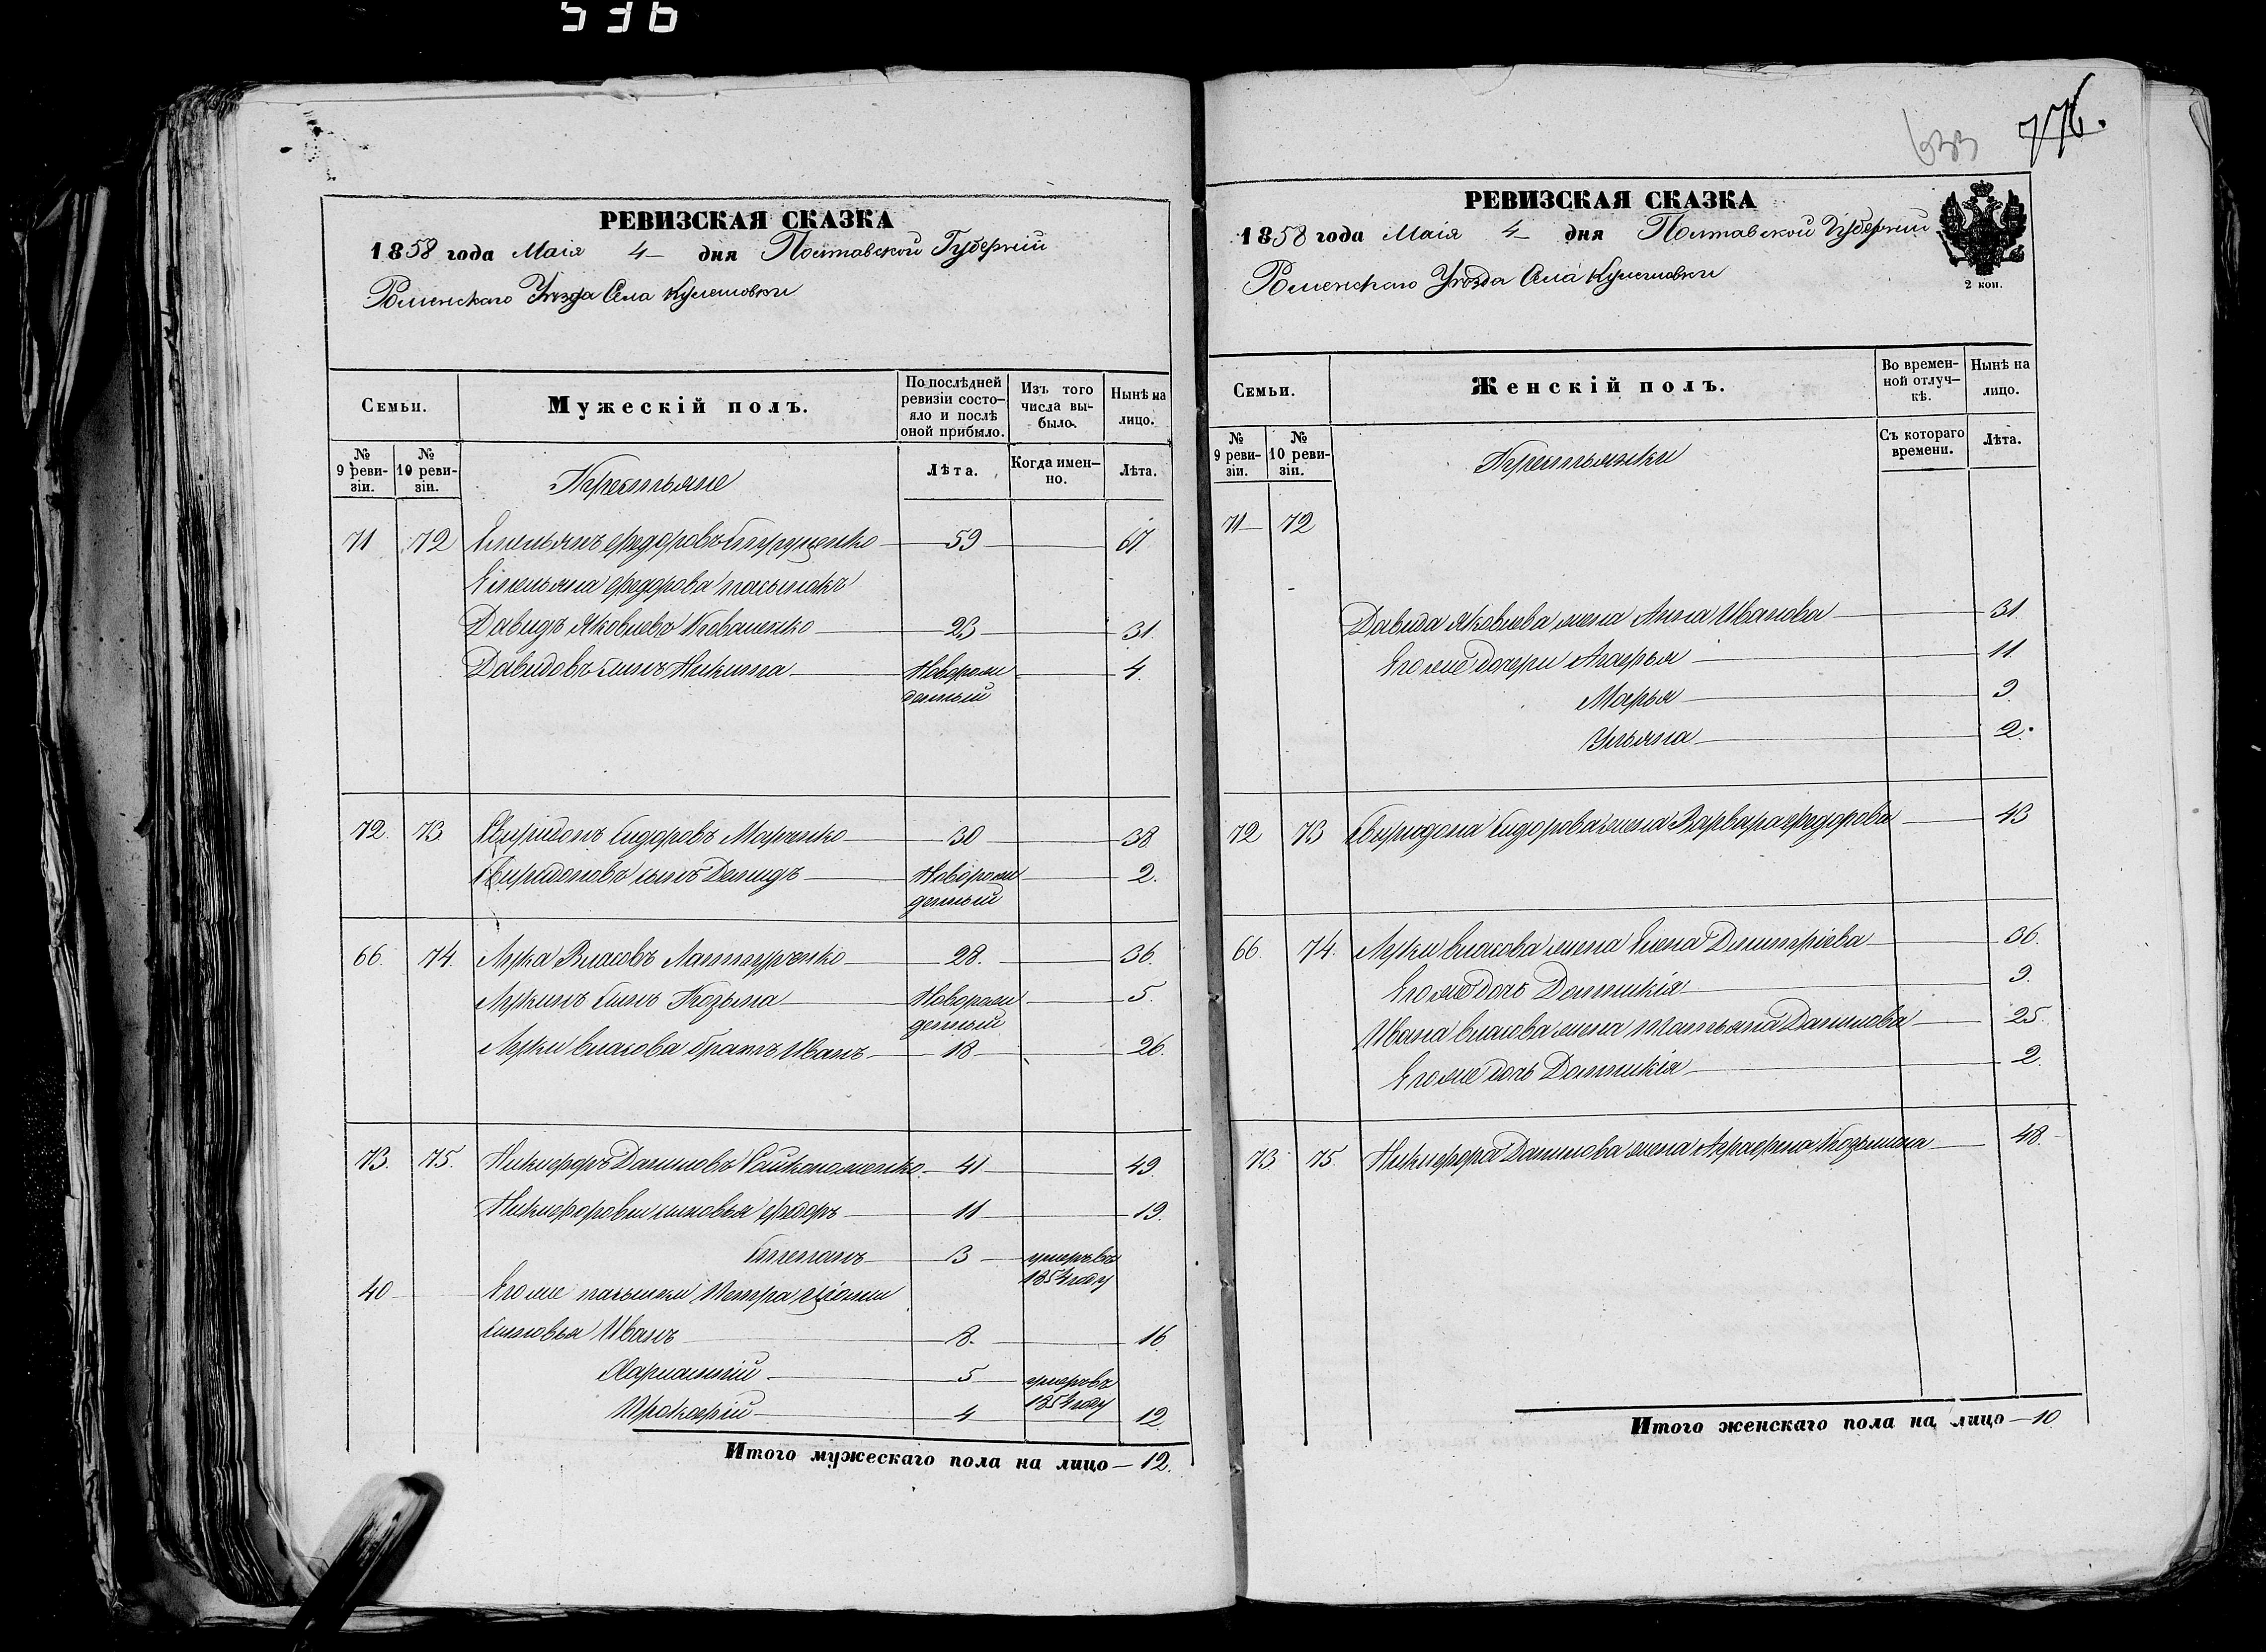 536
776.
633
РЕВИЗСКАЯ СКАЗКА
1858 года Маія 4 дня Полтавской Губерніи
Роменскаго Уѣзда Села Кулешовки
Семьи.
Мужескій полъ.
По послѣдней ревизіи состояло и послѣ оной прибыло.
Изъ того числа выбыло.
Нынѣ на лицо.
№ 9 ревизіи.
№ 10 ревизіи.
Крестьяне
Лѣта.
Когда именно.
Лѣта.
71 72 Емельянъ Федоровъ 59 67
Емельяна Федорова пасынокъ
Давидъ Яковлевъ Коваленко 23 31.
Давидовъ сынъ Никита Новорожденный 4.
72. 73 Свиридонъ Сидоровъ Марченко 30 38.
Свиридоновъ сынъ Демидъ Новорожденный 2.
66. 74. Лука Власовъ 28. 36.
Лукинъ сынъ Козьма Новорожденный 5.
Луки Власова братъ Иванъ 18 26.
73. 75. Никифоръ Даниловъ 41 49.
Никифоровы сыновья Федоръ 11 19.
Степанъ 3 умеръ въ 1854 году
40 Его же пасынки Петра
сыновья Иванъ 8. 16
Харлампій 5 умеръ въ 1854 году
Прокофій 4 12
Итого мужескаго пола на лицо — 12.
РЕВИЗСКАЯ СКАЗКА
1858 года Маія 4 дня Полтавской Губерніи
Роменскаго Уѣзда Села Кулешовки
2 коп.
Семьи.
Женскій полъ.
Во временной отлучкѣ.
Нынѣ на лицо.
№ 9 ревизіи.
№ 10 ревизіи.
Крестьянки
Съ котораго времени.
Лѣта.
71 72
Давида Яковлева жена Анна Иванова 31.
Его же дочери Агафья 11.
Марья 9.
Ульяна 2.
72 73 Свиридона Сидорова жена Варвара Федорова 43
66. 74. Луки Власова жена Елена Дмитріева 36.
Его же дочь Домникія 9.
Ивана Власова жена Татьяна Данилова 25.
Его же дочь Домникія 2.
73 75. Никифора Данилова жена Аграфена Козьмина 48.
Итого женскаго пола на лицо — 10